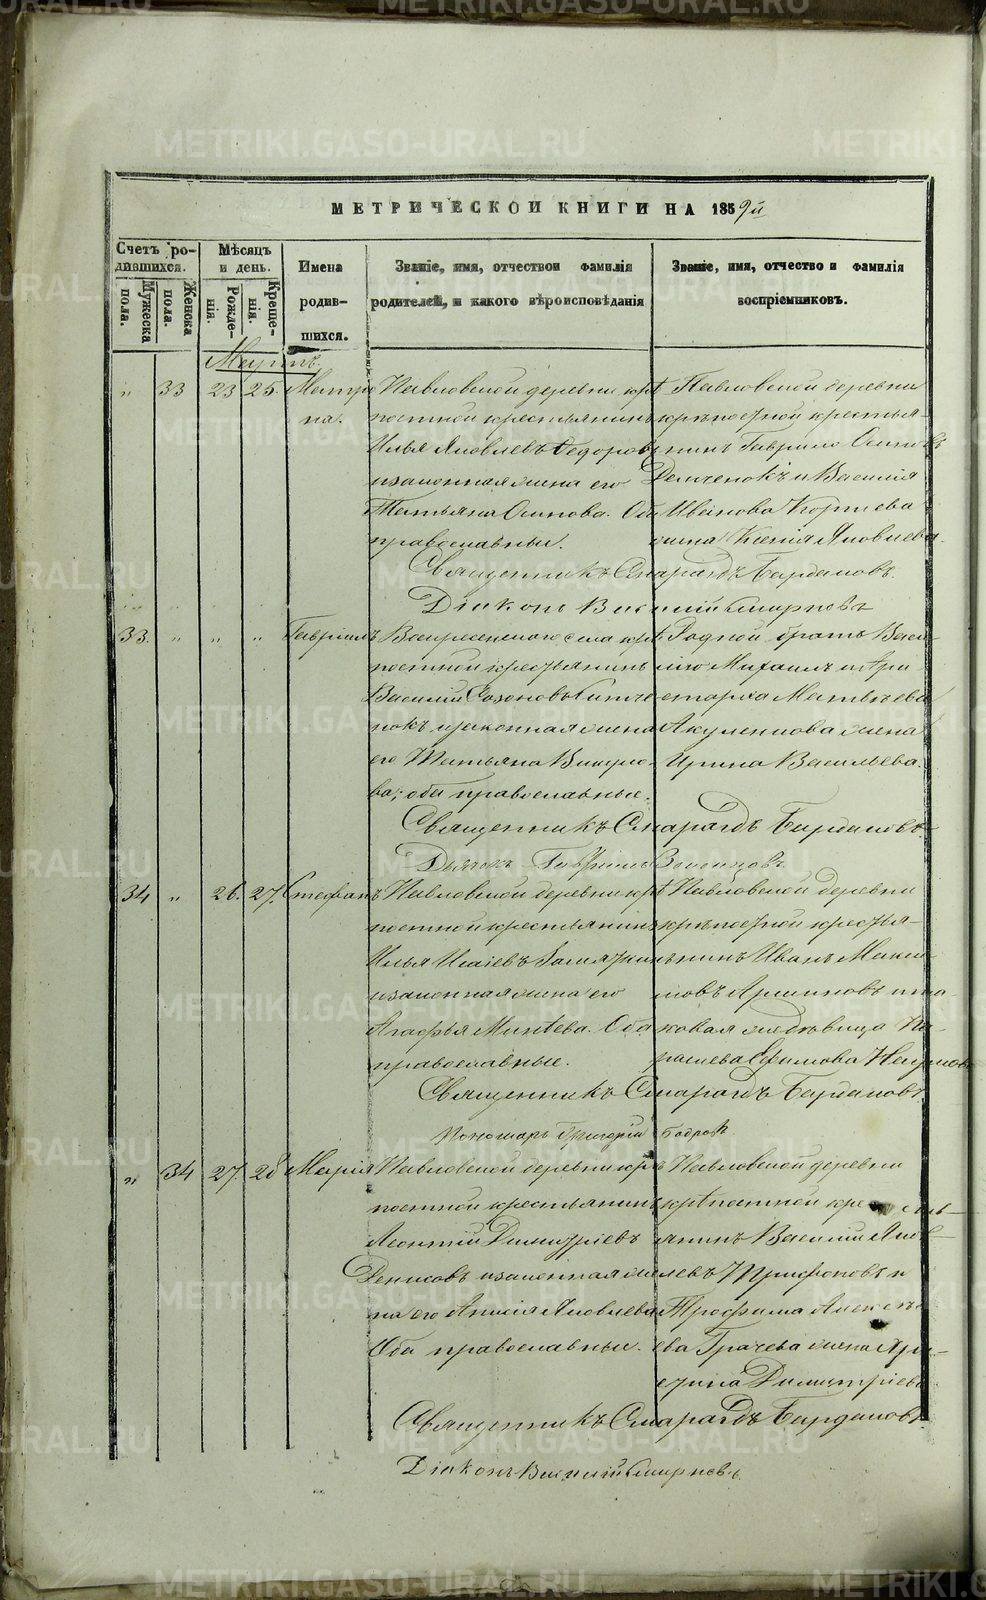 МЕТРИЧЕСКОЙ КНИГИ НА 1859й
Счетъ родившихся.
Мужеска пола.
Женска пола.
Мѣсяцъ и день.
Рожденія.
Крещенія.
Имена родившихся.
Званіе, имя, отчествои фамилія
родителей, и какого вѣроисповѣданія
Званіе, имя, отчество и фамилія
воспріемниковъ.
Мартъ.
" 33 23 25. Матрона.
Павловской деревни крѣ
постной крестьянинъ
Илья Яковлевъ Федоровъ
изаконная жена его
Татьяна Осипова. Оба
православные.
Павловской деревни
крѣпостной крестья-
нинъ Гаврило Осиповъ
Демченокъ и Василія
Иванова Корнева
жена Ксенія Яковлева.
Священникъ Смарагдъ Бирюковъ.
Діаконъ Василій Смирновъ
33. " " " Гавріилъ
Воскресенскаго села крѣ
постной крестьянинъ
Василій
нокъ изаконная жена
его Татьяна Викуло-
ва; оба православные.
Родной братъ Васи-
лію Михаилъ и Ари-
старха Матвѣева
Акуленкова жена
Ирина Васильева.
Священникъ Смарагдъ
Дьячокъ Гавріилъ
34 " 26. 27. Стефанъ
Павловской деревни крѣ
постной крестьянинъ
Илья Исаіевъ
изаконная жена его
Агафья Михѣева. Оба
православные.
Павловской деревни
крѣпостной крестья-
нинъ Иванъ Макси-
мовъ и та-
ковая же дѣвица Па-
расковья Ефимова
Священникъ Смарагдъ
Пономарь Григорій Бобровъ
" 34 27. 28 Марія
Павловской деревни крѣ
постной крестьянинъ
Леонтій Димитріевъ
Денисовъ изаконная же
на его Анисія Яковлева
Оба православные.
Павловской деревни
крѣпостной кресть-
янинъ Василій Яков-
левъ Трифоновъ и
Трофима Алексѣ-
ева Грачева жена Ири-
Димитріева
Священникъ Смарагдъ
Діаконъ Василій Смирновъ.
METRIKI.GASO-URAL.RU